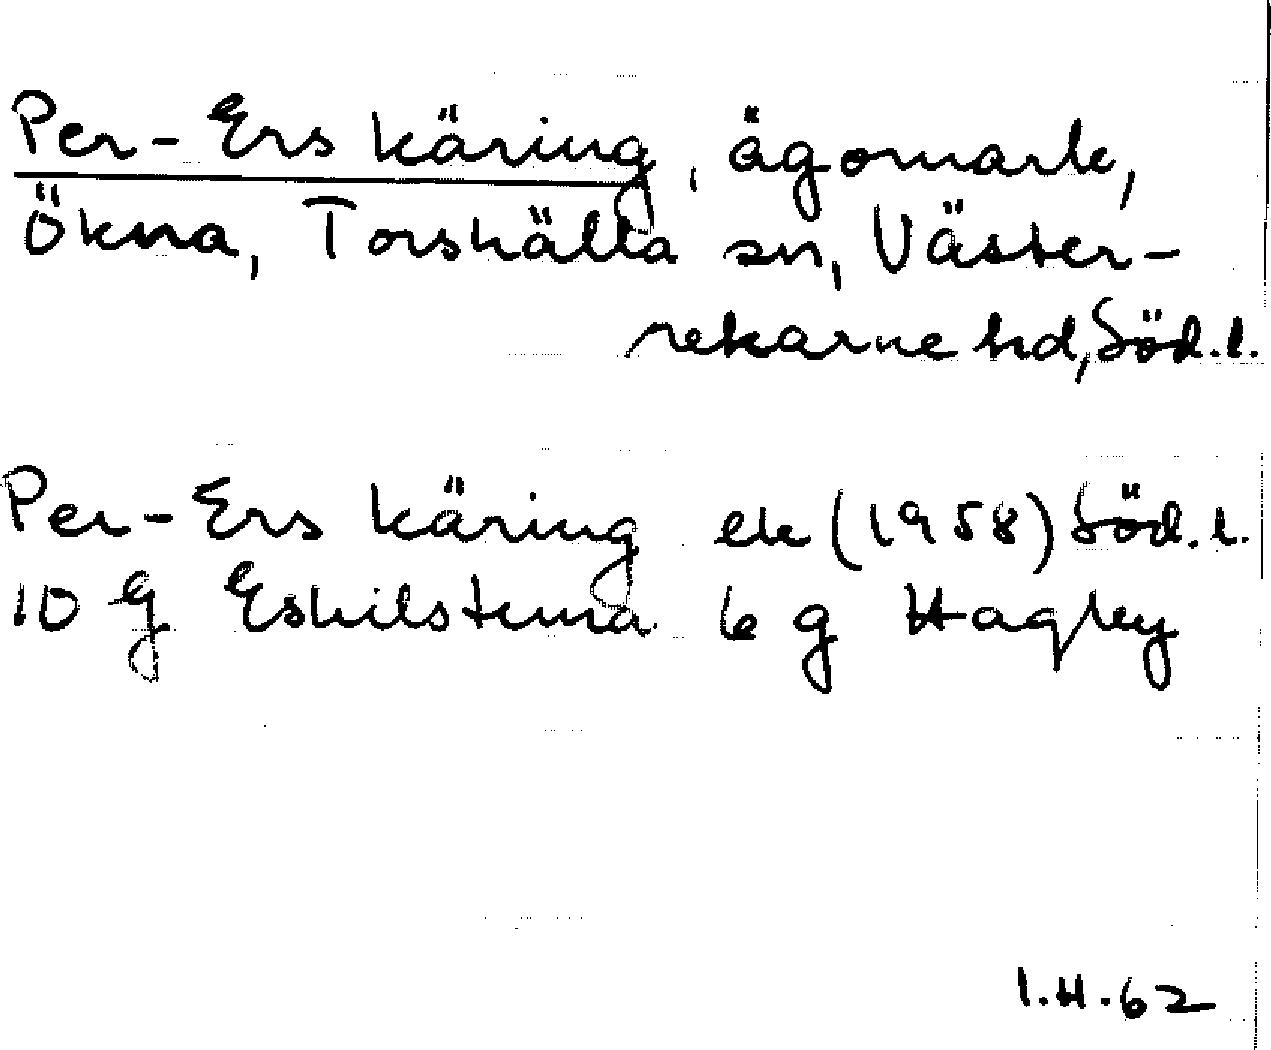 Per-Ers käring, ägomark,
Ökna, Torshälla sn, Väster-
rekarne hd, Söd.l.
Per-Ers käring ek (1958) Söd.l.
10 g Eskilstuna 6 g Hagby
1.H.62